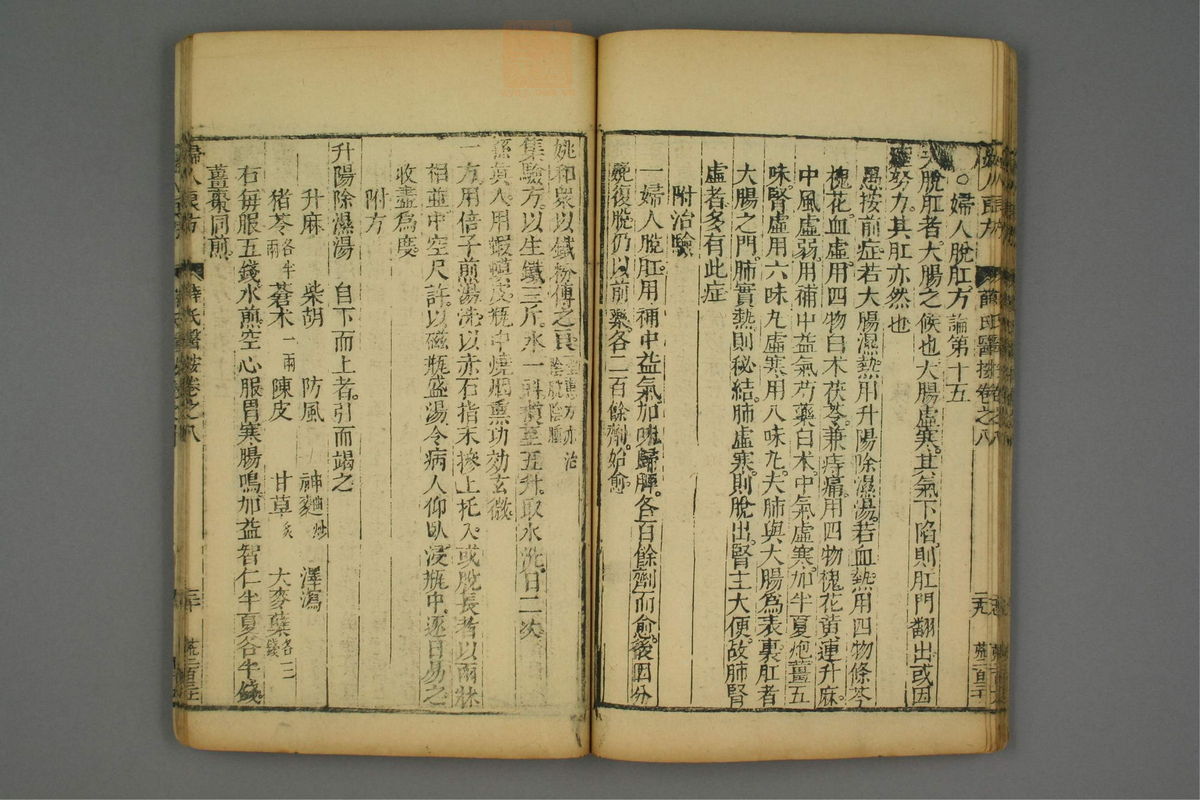 婦人良方 薛氏醫按卷之八
○婦人脫肛方論第十五
夫脫肛者大腸之候也大腸虛寒其氣下陷則肛門翻出或因
努力其肛亦然也
愚按前症若大腸濕熱用升陽除濕湯若血熱用四物條芩
槐花血虛用四物白朮茯苓兼痔痛用四物槐花黃連升麻
中風虛弱用補中益氣芍藥白朮中氣虛寒加半夏炮薑五
味腎虛用六味丸虛寒用八味丸夫肺與大腸為表裏肛者
大腸之門肺實熱則秘結肺虛寒則脫出腎主大便故肺腎
虛者多有此症
附治驗
一婦人脫肛用補中益氣加
歸脾各百餘劑而愈後因分
娩復脫仍以前藥各二百餘劑始愈
姚和衆以鐵粉傅之良
方亦治
集驗方以生鐵三斤水一斗煑至五升取水洗日二次
孫眞人用蝦蟇皮瓶中燒烟熏功効玄微
一方用倍子煎湯洗以赤石指末摻上托入或脫長者以兩牀
相並中空尺許以磁瓶盛湯令病人仰臥浸瓶中逐日易之
收盡爲度
附方
升陽除濕湯 自下而上者引而竭之
升麻 柴胡 防風 神麴炒 澤瀉
猪苓各半兩 蒼朮一兩 陳皮 甘草炙 大麥蘗各三錢
右每服五錢水煎空心服胃寒腸鳴加益智仁半夏各半錢
薑棗同煎
婦人良方 薛氏醫按卷之八